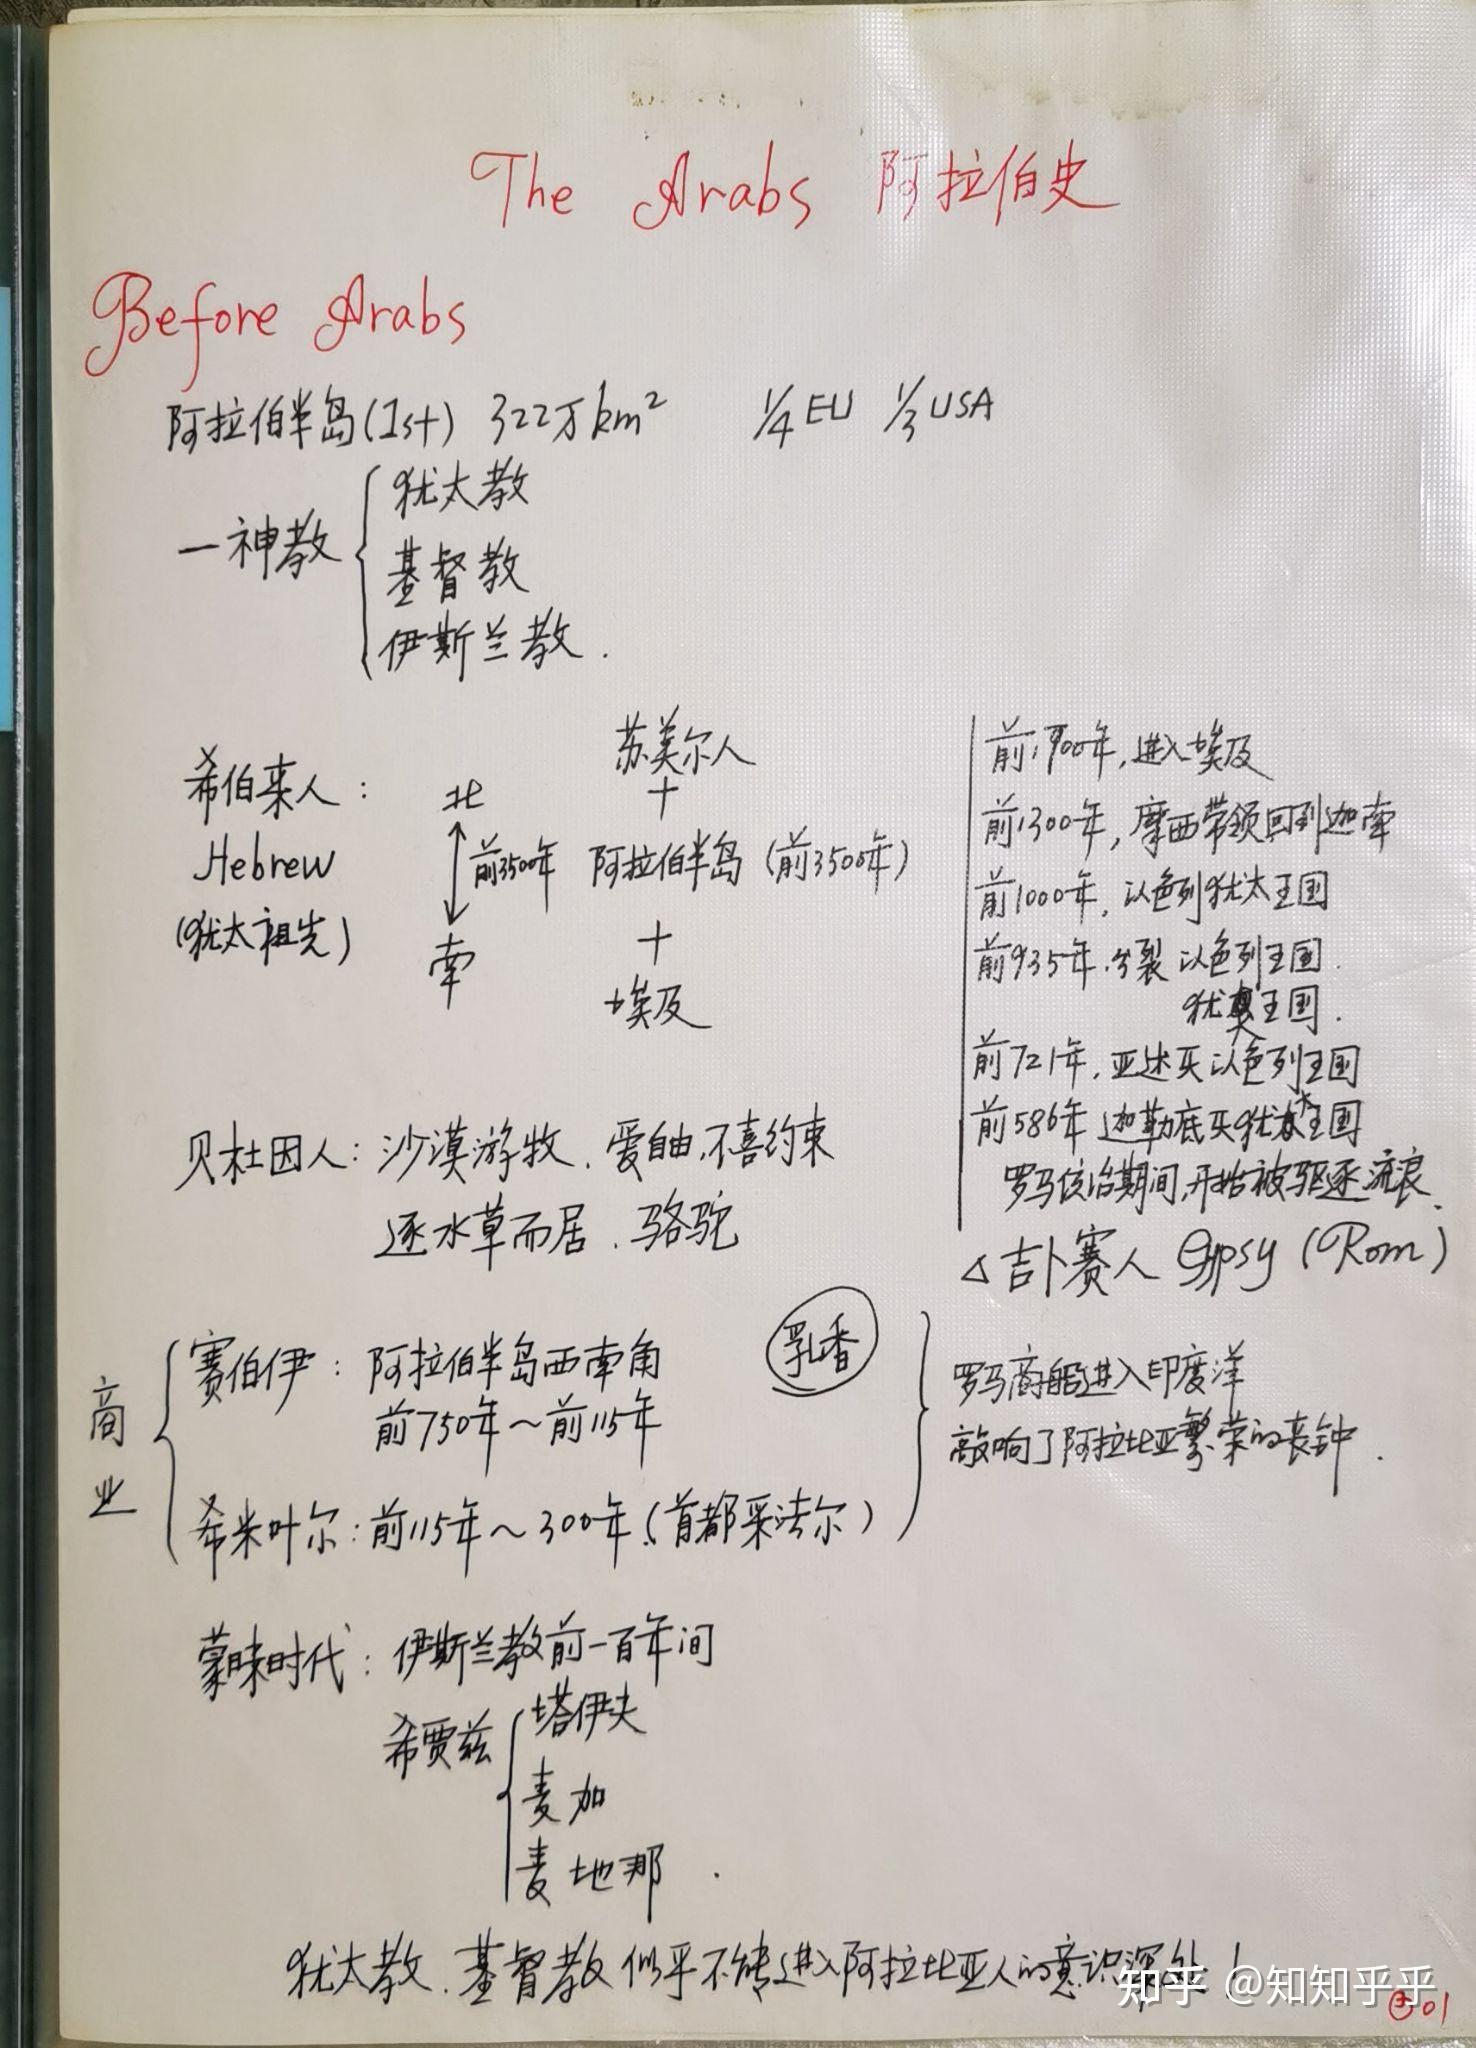 The Arabs 阿拉伯史
Before Arabs
阿拉伯半岛(1st) 322万km² 1/4 EU 1/3 USA
一神教
犹太教
基督教
伊斯兰教.
希伯来人:
Hebrew
(犹太祖先)
北
前3500年
南
苏美尔人
+
阿拉伯半岛(前3500年)
+
埃及
前1900年,进入埃及
前1300年,摩西带领回到迦南
前1000年,以色列犹太王国
前935年.分裂 以色列王国.
犹太王国.
前721年,亚述灭以色列王国
前586年 迦勒底灭犹太王国
罗马统治期间,开始被驱逐流浪.
△吉卜赛人 Gypsy (Rom)
贝杜因人:沙漠游牧、爱自由,不喜约束
逐水草而居.骆驼
商业
赛伯伊:阿拉伯半岛西南角
前750年~前115年
乳香
希米叶尔:前115年~300年.(首都采法尔)
罗马商船进入印度洋
敲响了阿拉比亚繁荣的丧钟.
蒙昧时代:伊斯兰教前一百年间
希贾兹
塔伊夫
麦加
麦地那.
犹太教.基督教似乎不能进入阿拉比亚人的意识深处!
知乎 @知知乎乎
01